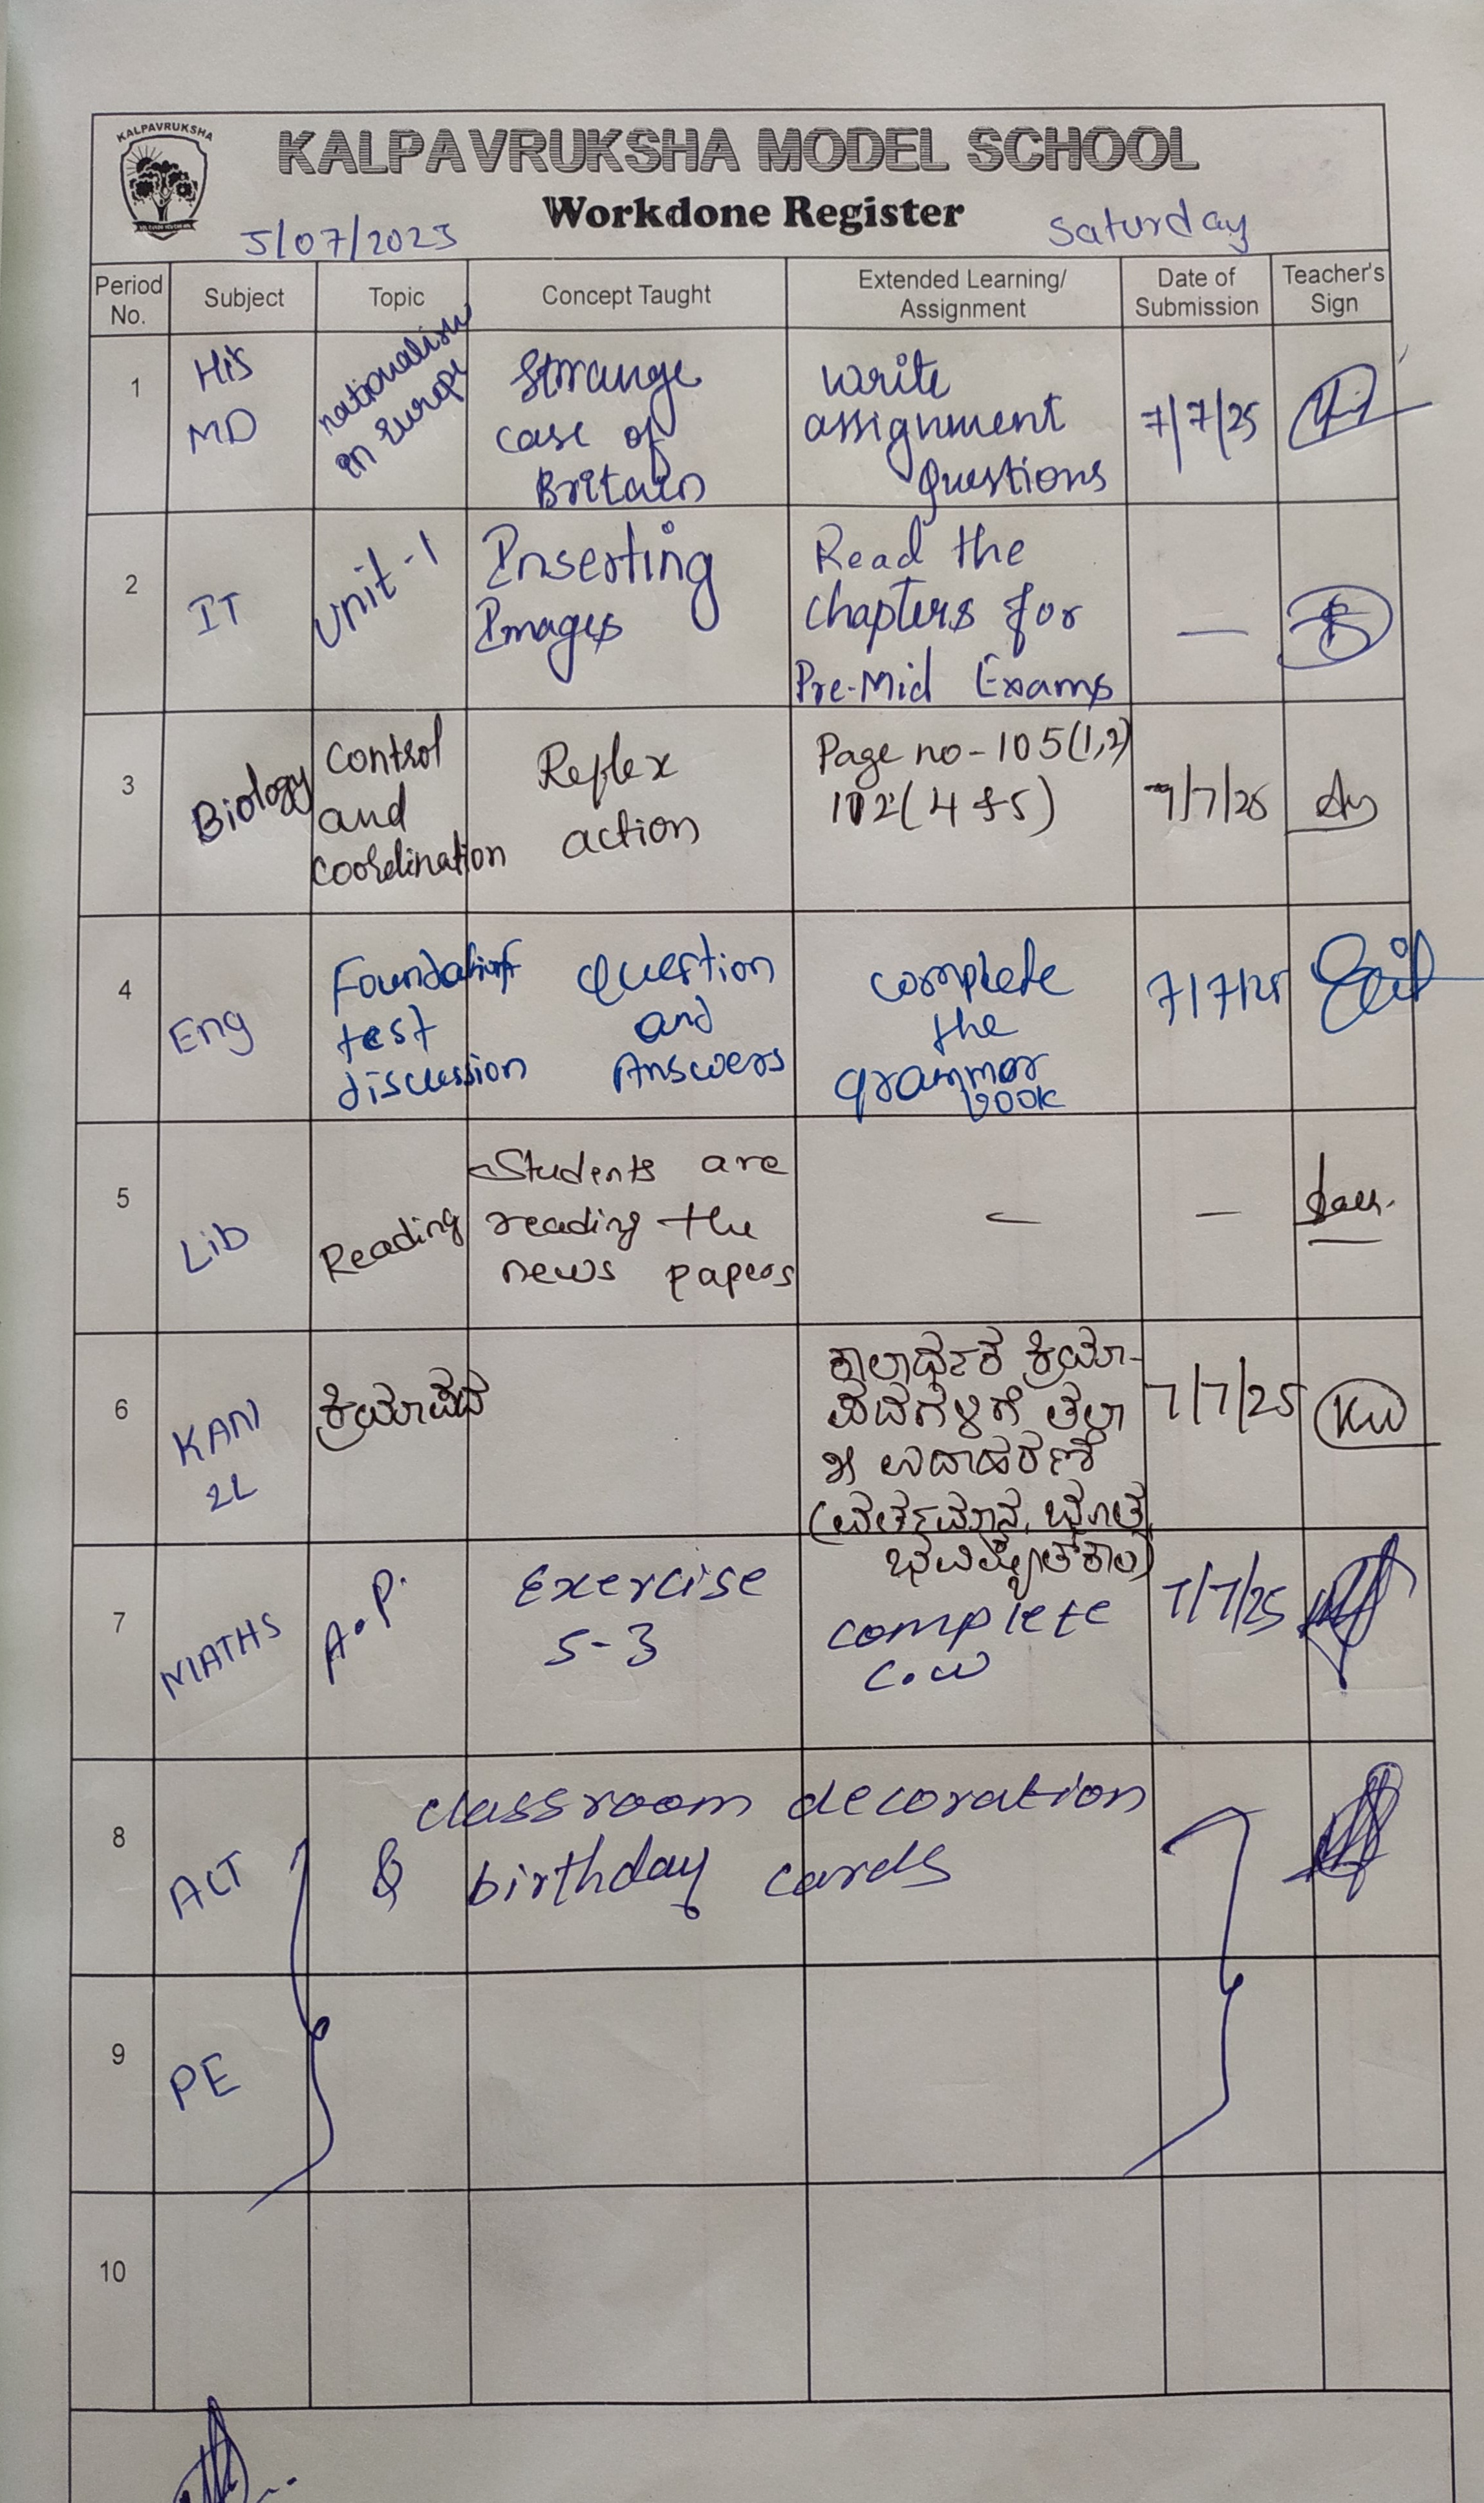 KALPAVRUKSHA
KALPAVRUKSHA MODEL SCHOOL
Workdone Register
5/07/2025
Saturday
Period No.
Subject
Topic
Concept Taught
Extended Learning/
Assignment
Date of
Submission
Teacher's
Sign
1
His
MD
nationalism
in Europe
Strange
case of
Britain
write
assignment
Questions
7/7/25
2
IT
Unit-1
Inserting
Images
Read the
chapters for
Pre-Mid Exams
—
3
Biology
Control
and
coordination
Reflex
action
Page no-105(1,2)
102(4&5)
7/7/25
4
Eng
Foundation
test
discussion
Question
and
Answers
complete
the
grammar
book
7/7/25
5
Lib
Reading
Students are
reading the
news papers
—
—
6
KAN
2L
ಕ್ರಿಯಾಪದ
ಕಾಲಾರ್ಥಕ ಕ್ರಿಯಾ-
ಪದಗಳಿಗೆ ತಲಾ
೫ ಉದಾಹರಣೆ
(ವರ್ತಮಾನ, ಭೂತ,
ಭವಿಷ್ಯತ್‌ಕಾಲ)
7/7/25
7
MATHS
A.P.
Exercise
5-3
complete
C.W
7/7/25
8
ACT
classroom decoration
& birthday cards
9
PE
10